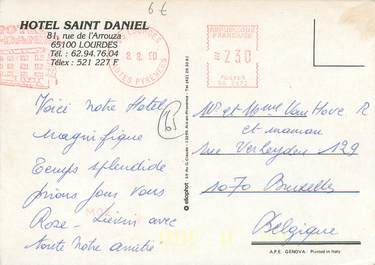 6 €
HOTEL SAINT DANIEL
81, rue de l'Arrouza
65100 LOURDES
Tél. : 62.94.76.04
Télex : 521 227 F
REPUBLIQUE
FRANCAISE
230
POSTES
Voici notre Hotel
magnifique
Temps splendide
prions pour vous
Rose - Liévin avec
toute notre amitié
65
eliophot
Mr et Mme Van Hove R
et maman
rue Verheyden 129
1070 Bruxelles
Belgique
A.P.E. GENOVA - Printed in Italy